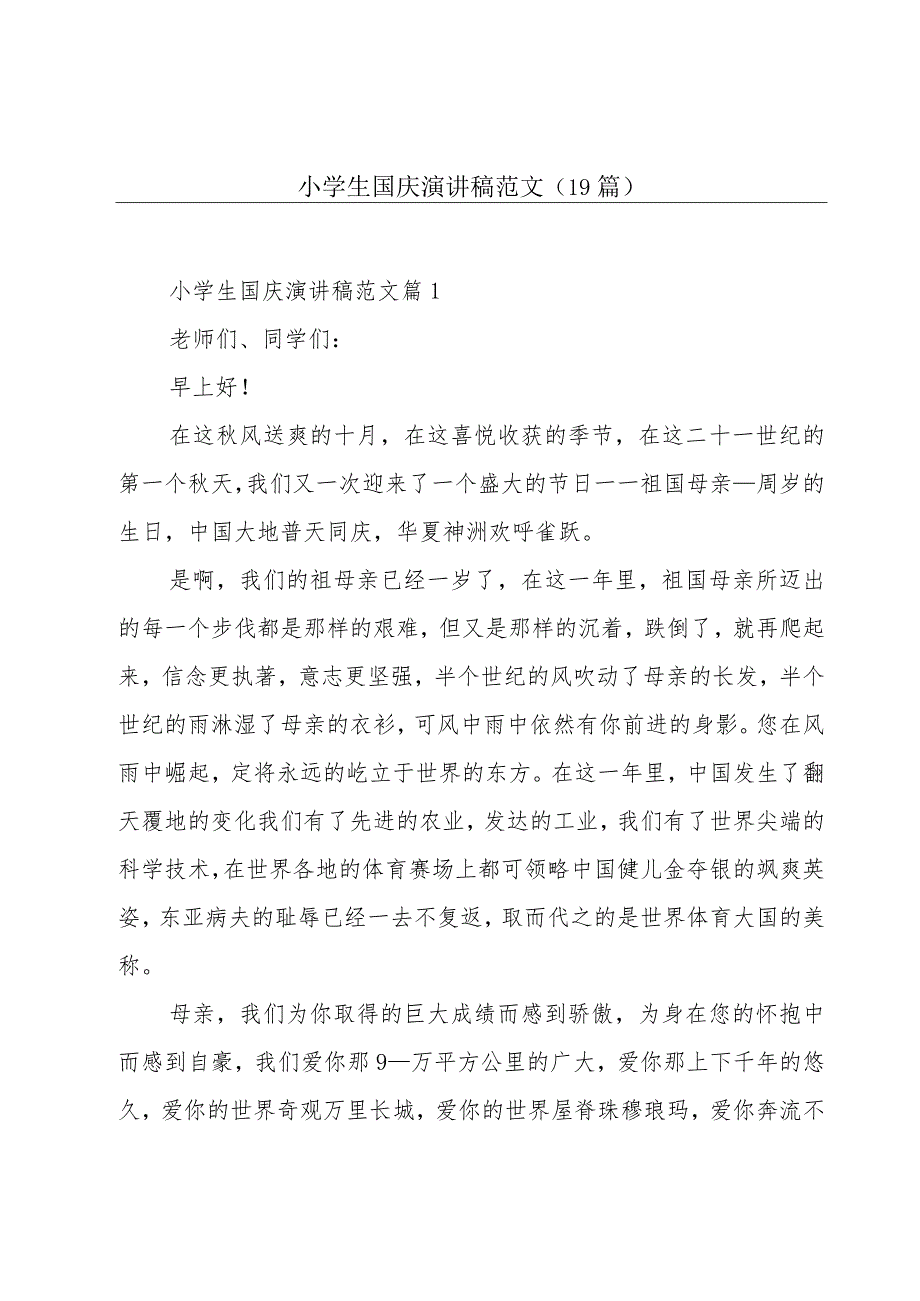 小学生国庆演讲稿范文（19 篇）
小学生国庆演讲稿范文篇 1
老师们、同学们：
早上好！
在这秋风送爽的十月，在这喜悦收获的季节，在这二十一世纪的
第一个秋天,我们又一次迎来了一个盛大的节日一一祖国母亲—周岁的
生日，中国大地普天同庆，华夏神洲欢呼雀跃。
是啊，我们的祖母亲已经一岁了，在这一年里，祖国母亲所迈出
的每一个步伐都是那样的艰难，但又是那样的沉着，跌倒了，就再爬起
来，信念更执著，意志更坚强，半个世纪的风吹动了母亲的长发，半个
世纪的雨淋湿了母亲的衣衫，可风中雨中依然有你前进的身影。您在风
雨中崛起，定将永远的屹立于世界的东方。在这一年里，中国发生了翻
天覆地的变化我们有了先进的农业，发达的工业，我们有了世界尖端的
科学技术,在世界各地的体育赛场上都可领略中国健儿金夺银的飒爽英
姿，东亚病夫的耻辱已经一去不复返，取而代之的是世界体育大国的美
称。
母亲，我们为你取得的巨大成绩而感到骄傲，为身在您的怀抱中
而感到自豪，我们爱你那 9—万平方公里的广大，爱你那上下千年的悠
久，爱你的世界奇观万里长城，爱你的世界屋脊珠穆琅玛，爱你奔流不